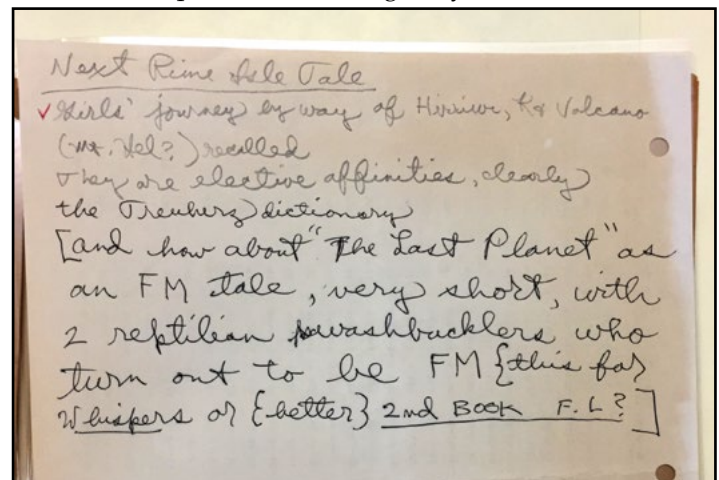 Next Rime Isle Tale
✓ Girls' journey by way of Hirriwi, K & Volcano
(Mt. Hel?) recalled
They are elective affinities, clearly
the Treuherz dictionary
[and how about "The Last Planet" as
an FM tale, very short, with
2 reptilian swashbucklers who
turn out to be FM {this for
Whispers or {better} 2nd BOOK F.L?]